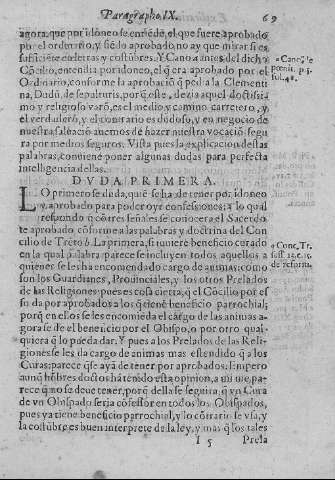 Paragrapho IX. 69
agora, que por idoneo se entiẽde, el que fuere aprobado
por el ordinario, y siẽdo aprobado no ay que mirar si es
suficiẽte en letras y costũbres. Y Cano antes del dicho
Cõcilio, entendia por idoneo, el q̃ era aprobado por el
Ordinario, conforme la aprobació q̃ pedia la Clementi
na, Dudũ. de sepulturis, porq̃ esse, dezia aquel doctissi
mo y religioso varõ, es el medio, y camino carretero, y
el verdadero, y el contrario es dudoso, y en negocio de
nuestra saluaciõ auemos de hazer nuestra vocaciõ segu
ra por medios seguros. Vista pues la explicacion destas
palabras, conuiene poner algunas dudas para perfecta
intelligencia dellas.
DVDA PRIMERA.
LO primero se duda, quiẽ se ha de tener por idoneo
y aprobado para poder oyr confessiones: a lo qual
respondo q̃ cõ tres señales se conocera el Sacerdo
te aprobado cõforme a las palabras y doctrina del Con
cilio de Trẽto b. La primera, si tuuiere beneficio curado
en la qual palabra parece se incluyen todos aquellos a
quienes se les ha encomendado cargo de animas: como
son los Guardianes, Prouinciales, y los otros Prelados
de las Religiones pues es cosa cierta, q̃ el Cõcilio por es
so da por aprobados a los q̃ tienẽ beneficio parrochial;
porq̃ en ellos se les encomiẽda el cargo de las animas a
gora se de el beneficio por el Obispo, o por otro qual-
quiera q̃ lo pueda dar: Y pues a los Prelados de las Reli
giones se les da cargo de animas mas estendido q̃ a los
Curas: parece q̃ se aya de tener por aprobados: Empero
aunq̃ hõbres doctos hã tenido esta opinion, a mi me pa-
rece q̃ no se deue tener, porq̃ della se seguira q̃ vn Cura
de vn Obispado seria cõfessor en todos los Obispados,
pues ya tiene beneficio parrochial, y lo cõtrario se vsa, y
la costũbre es buen interprete de la ley, y mas q̃ los tales
I 5 Prela
a Conc. Tr.
sess. 23. c. 15.
de reform.